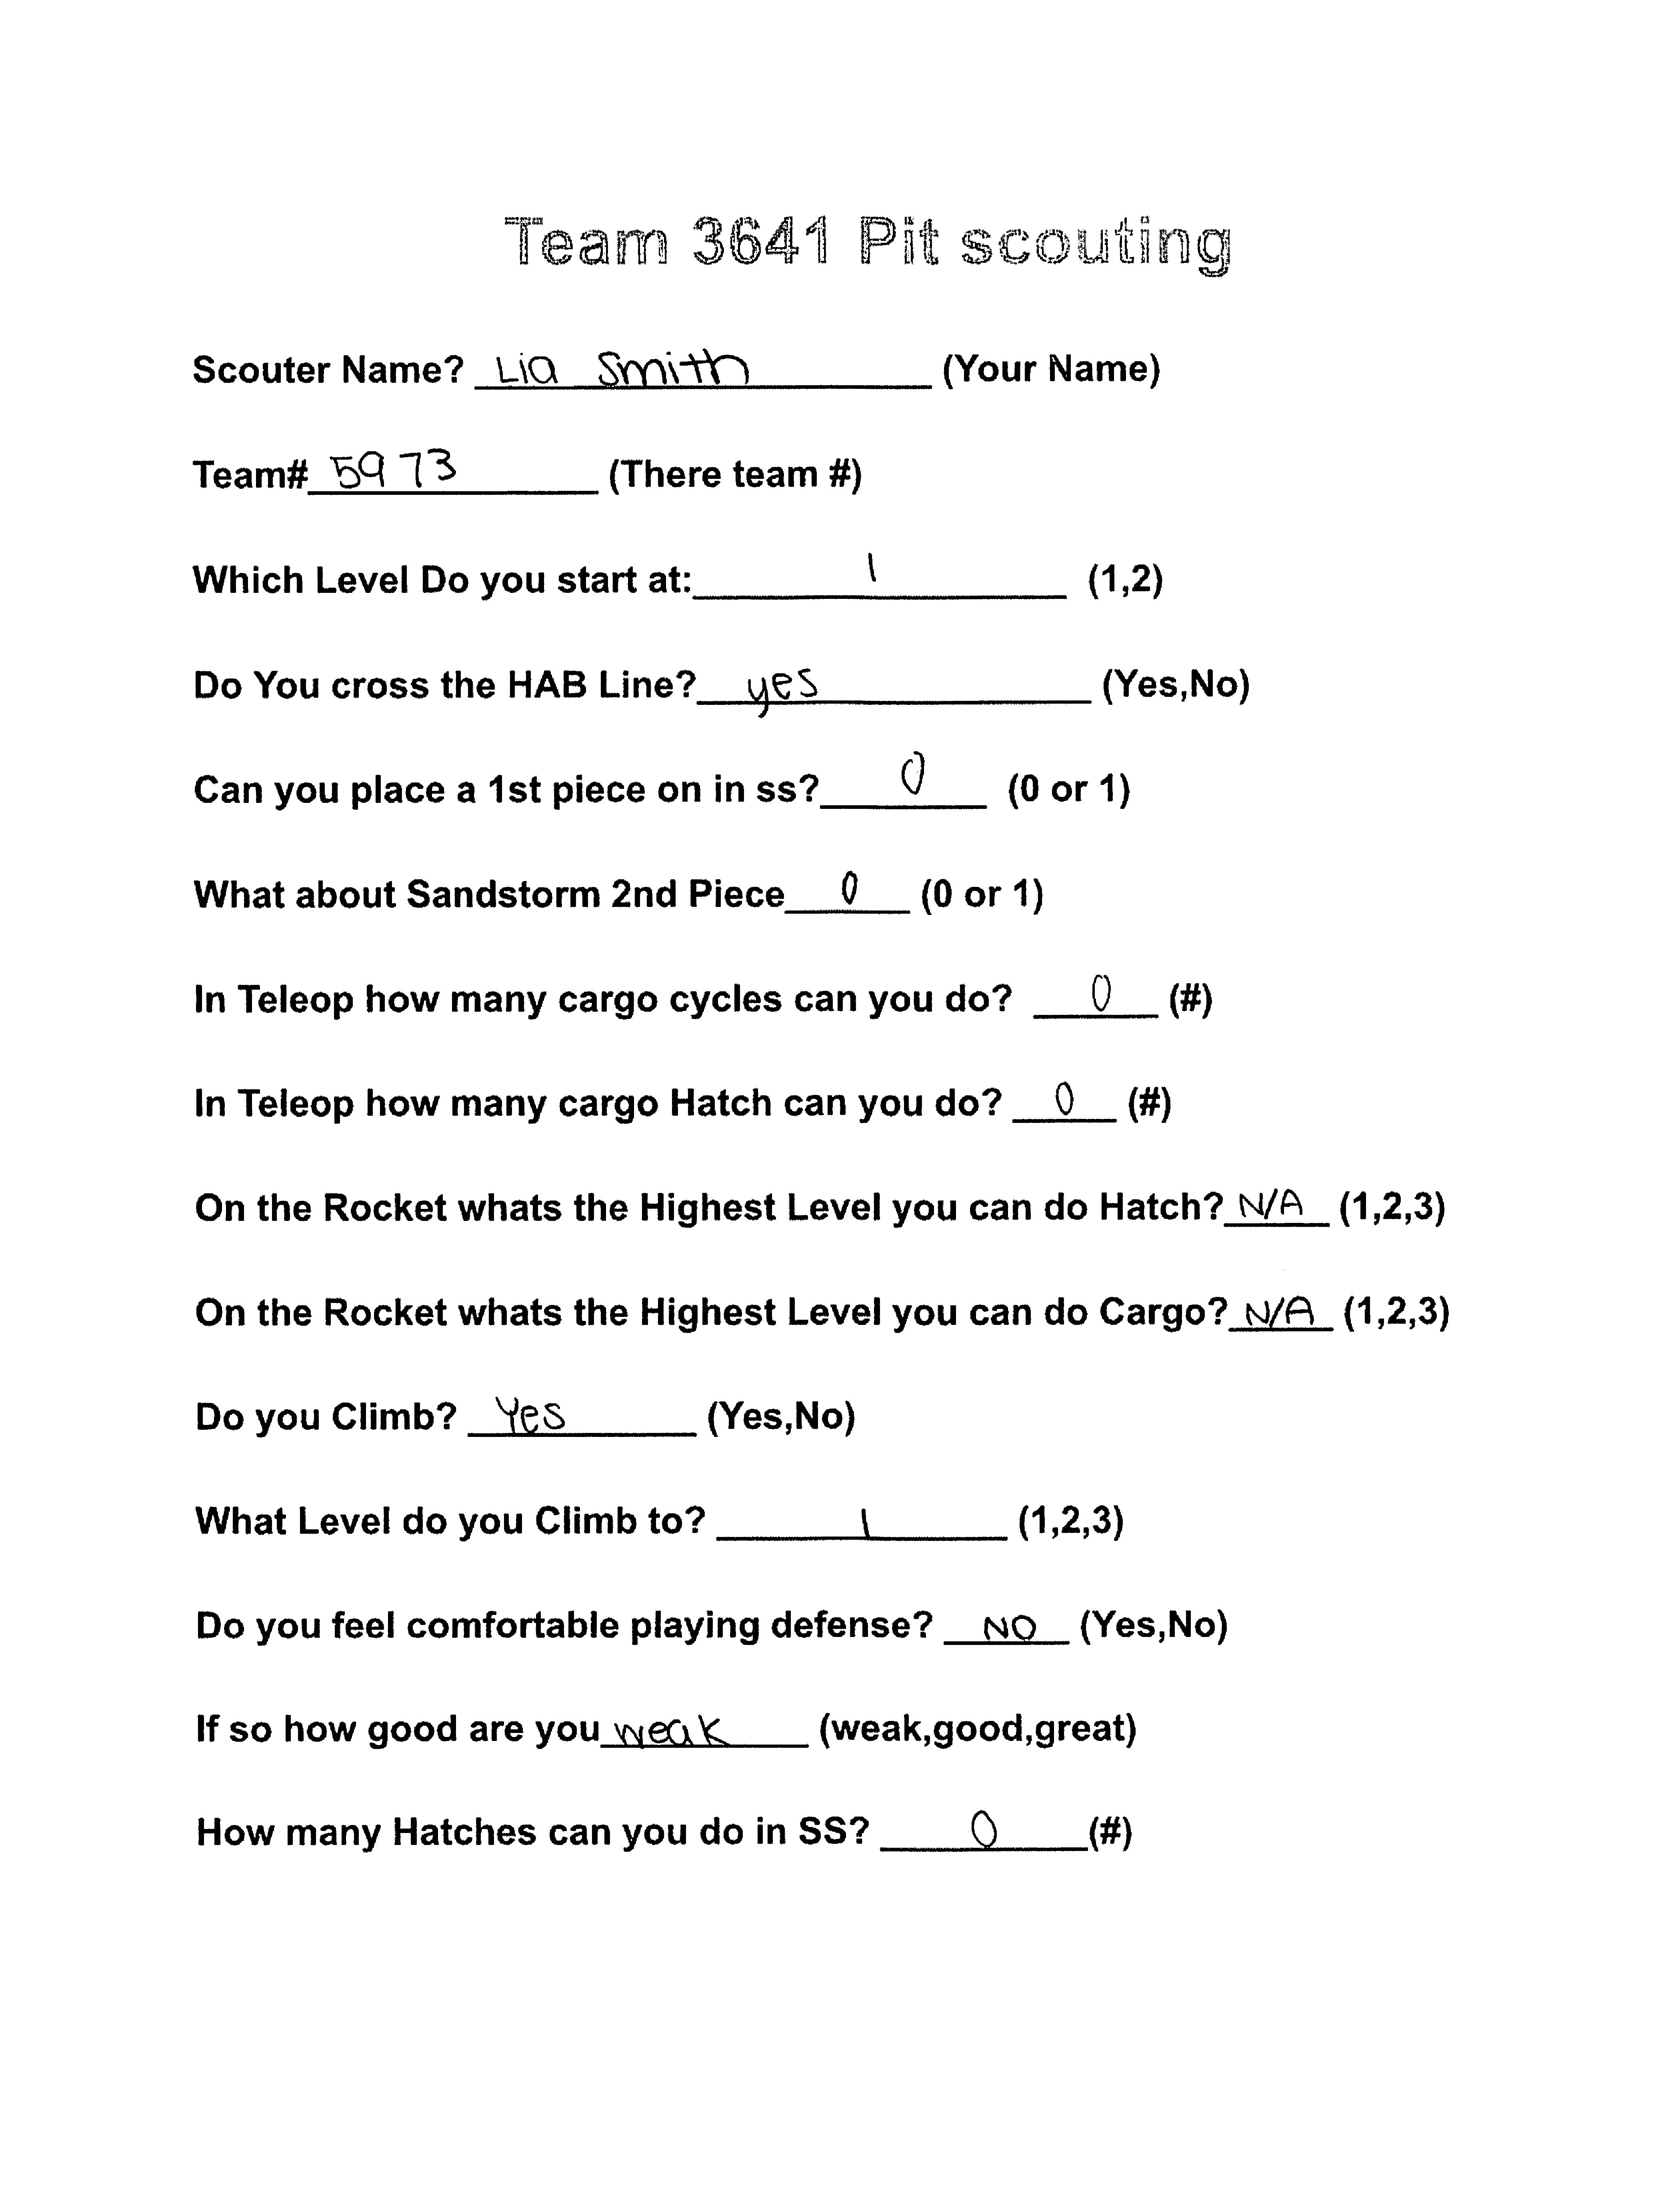 Team 3641 Pit scouting
Scouter Name? Lia Smith (Your Name)
Team# 5973 (There team #)
Which Level Do you start at: 1 (1,2)
Do You cross the HAB Line? yes (Yes,No)
Can you place a 1st piece on in ss? 0 (0 or 1)
What about Sandstorm 2nd Piece 0 (0 or 1)
In Teleop how many cargo cycles can you do? 0 (#)
In Teleop how many cargo Hatch can you do? 0 (#)
On the Rocket whats the Highest Level you can do Hatch? N/A (1,2,3)
On the Rocket whats the Highest Level you can do Cargo? N/A (1,2,3)
Do you Climb? Yes (Yes,No)
What Level do you Climb to? 1 (1,2,3)
Do you feel comfortable playing defense? NO (Yes,No)
If so how good are you weak (weak,good,great)
How many Hatches can you do in SS? 0 (#)